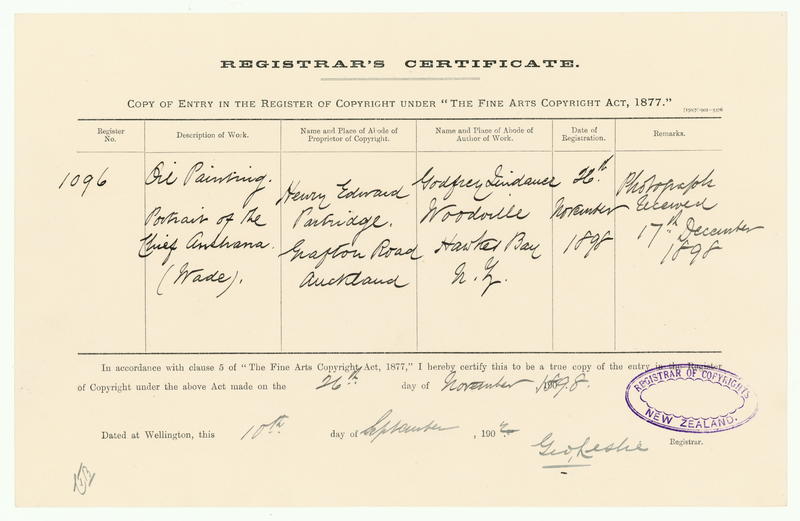 REGISTRAR'S CERTIFICATE.
COPY OF ENTRY IN THE REGISTER OF COPYRIGHT UNDER "THE FINE ARTS COPYRIGHT ACT, 1877."
Register No.
Description of Work.
Name and Place of Abode of Proprietor of Copyright.
Name and Place of Abode of Author of Work.
Date of Registration.
Remarks.
1096
Oil Painting.
Portrait of the
Chief
(Wade).
Henry Edward
Partridge.
Grafton Road
Auckland
Godfrey Lindauer
Woodville
Hawkes Bay
N. Z.
26th
November
1898
Photograph
received
17th December
1898
In accordance with clause 5 of "The Fine Arts Copyright Act, 1877," I hereby certify this to be a true copy of the entry in the Register
of Copyright under the above Act made on the 26th day of November 1898.
Dated at Wellington, this 10th day of September, 190
Geo Leslie
Registrar.
REGISTRAR OF COPYRIGHTS
NEW ZEALAND.